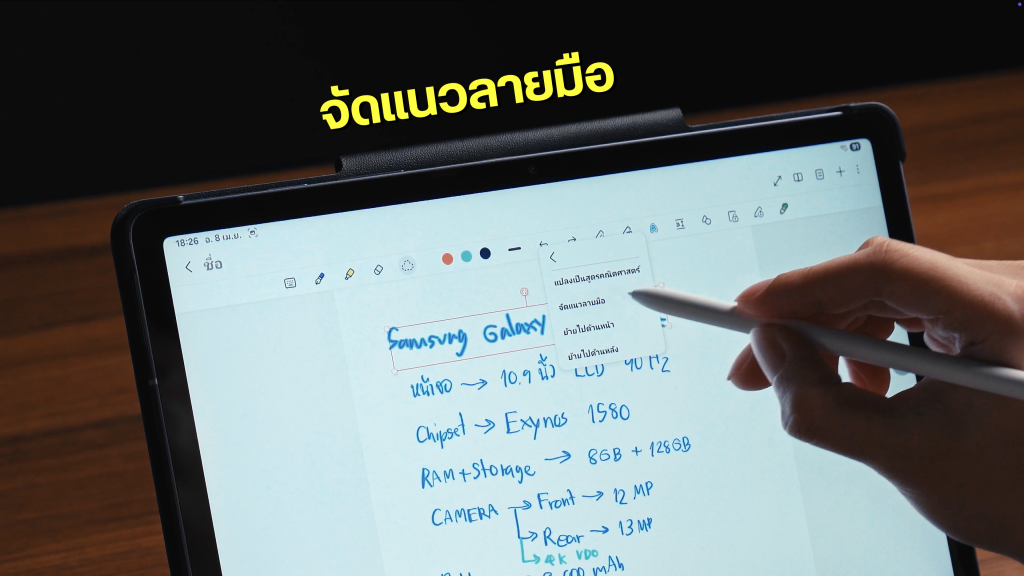 จัดแนวลายมือ
18:26 อ. 8 เม.ย.
91
ชื่อ
แปลงเป็นสูตรคณิตศาสตร์
จัดแนวลายมือ
ย้ายไปด้านหน้า
ย้ายไปด้านหลัง
Samsung Galaxy
หน้าจอ → 10.9 นิ้ว LCD 90 Hz
Chipset → Exynos 1580
RAM + Storage → 8GB + 128GB
CAMERA → Front → 12 MP
→ Rear → 13 MP
→ 4K VDO
mAh